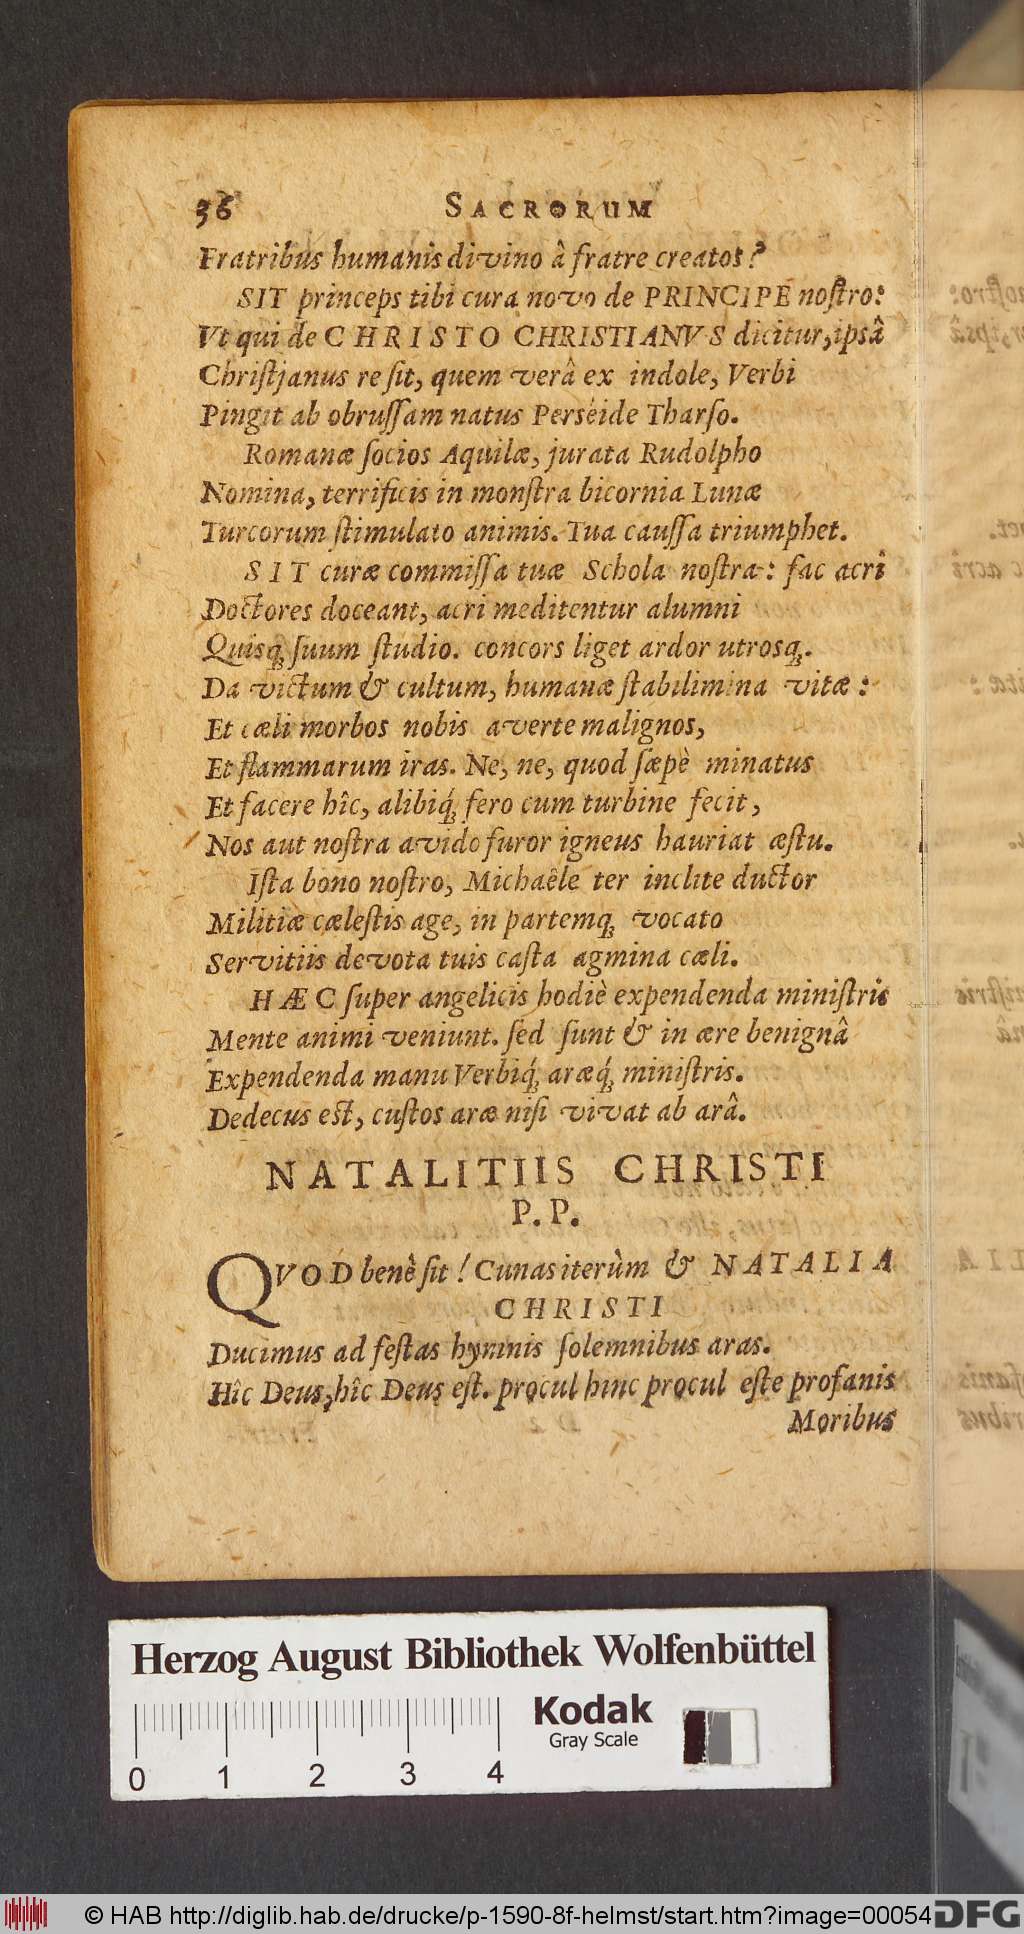 36 SACRORUM
Fratribus humanis divino â fratre creatos?
SIT princeps tibi cura novo de PRINCIPE noſtro:
Vt qui de CHRISTO CHRISTIANVS dicitur, ipsâ
Chriſtjanus re ſit, quem verâ ex indole, Verbi
Pingit ab obruſſam natus Perséide Tharſo.
Romanæ ſocios Aquilæ, jurata Rudolpho
Nomina, terrificis in monſtra bicornia Lunæ
Turcorum ſtimulato animis. Tua cauſſa triumphet.
SIT curæ commiſſa tuæ Schola noſtra: fac acri
Doctores doceant, acri meditentur alumni
Quisq́ ſuum ſtudio. concors liget ardor utrosq́.
Da victum & cultum, humanæ ſtabilimina vitæ:
Et cæli morbos nobis averte malignos,
Et flammarum iras. Ne, ne, quod ſæpè minatus
Et facere hîc, alibiq́ fero cum turbine fecit,
Nos aut noſtra avido furor igneus hauriat æſtu.
Iſta bono noſtro, Michaêle ter inclite ductor
Militiæ cæleſtis age, in partemq́ vocato
Servitiis devota tuis caſta agmina cæli.
HÆC ſuper angelicis hodiè expendenda miniſtris
Mente animi veniunt. ſed ſunt & in ære benignâ
Expendenda manu Verbiq́ aræq́ miniſtris.
Dedecus eſt, cuſtos aræ niſi vivat ab arâ.
NATALITIIS CHRISTI
P. P.
QVOD benè ſit! Cunas iterùm & NATALIA
CHRISTI
Ducimus ad feſtas hymnis ſolemnibus aras.
Hîc Deus, hîc Deus eſt. procul hinc procul eſte profanis
Moribus
Herzog August Bibliothek Wolfenbüttel
Kodak
Gray Scale
0 1 2 3 4
© HAB http://diglib.hab.de/drucke/p-1590-8f-helmst/start.htm?image=00054
DFG